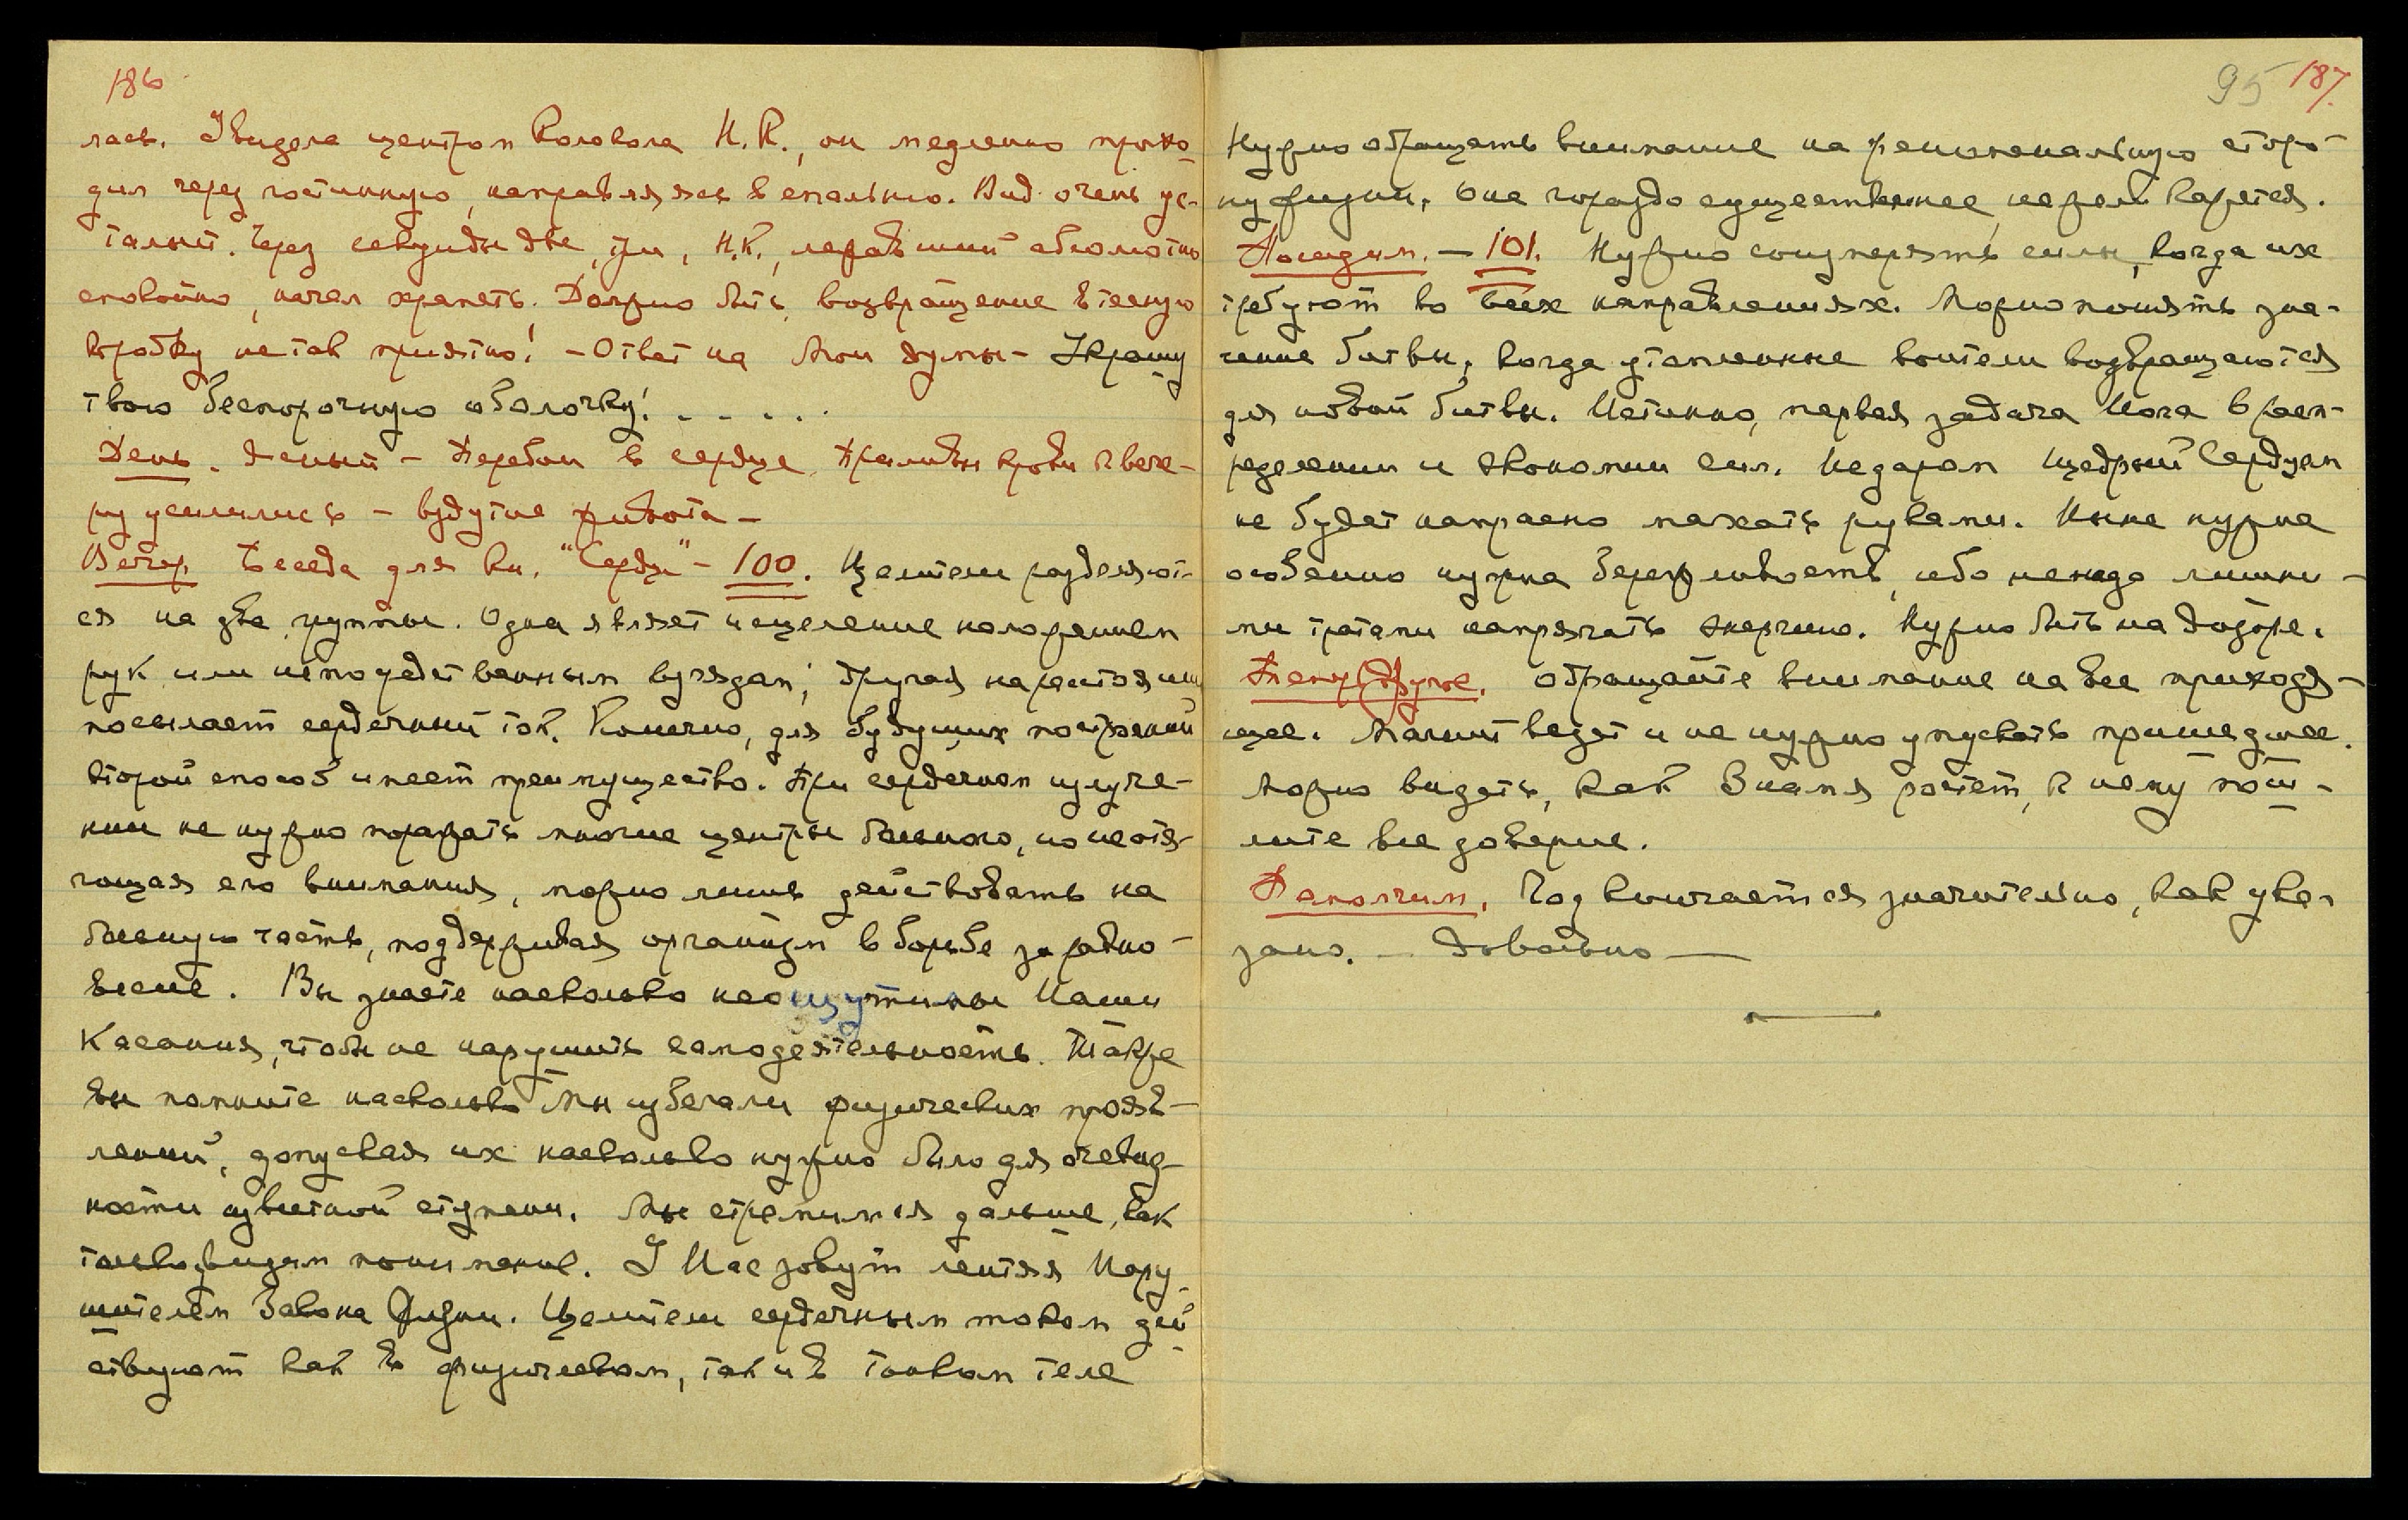 186
лась. Увидела центром Колокола Н.К., он медленно прохо-
дил через гостинную, направляясь в спальню. Вид очень ус-
талый. Через секунды две, три, Н.К., лежавший абсолютно
спокойно, начал храпеть. Должно быть, возвращение в тесную
коробку не так приятно! – Ответ на мои думы – Украшу
твою беспорочную оболочку! . . . . .
День. Ясный – Перебои в сердце. Приливы крови к вече-
ру усилились – вздутие живота –
Вечер. Беседа для кн. "Сердце" – 100. Целители разделяют-
ся на две группы. Одна являет исцеление наложением
рук или непосредственным взглядом; другая на расстоянии
посылает сердечный ток. Конечно, для будущих построений
второй способ имеет преимущество. При сердечном излуче-
нии не нужно поражать многие центры больного, но не отя-
гощая его внимания, можно лишь действовать на
больную часть, поддерживая организм в борьбе за равно-
весие. Вы знаете насколько неощутимы Наши
Касания, чтобы не нарушить самодеятельность. Также
вы помните насколько Мы избегали физических прояв-
лений, допуская их насколько нужно было для очевид-
ности известной ступени. Мы стремимся дальше, как
только видим понимание. У Нас зовут лентяя Нару-
шителем Закона Жизни. Целители сердечным током дей-
ствуют как в физическом, так и в тонком теле
95 187.
Нужно обращать внимание на феноменальную сторо-
ну жизни, она гораздо существеннее, нежели кажется.
Посидим. – 101. Нужно соизмерять силы, когда их
требуют во всех направлениях. Можно понять зна-
чение битвы, когда утомленные воители возвращаются
для новой битвы. Истинно, первая задача Иога в рас-
пределении и экономии сил. Недаром Щедрый Сердцем
не будет напрасно махать руками. Ныне нужна
особенно нужна бережливость, ибо не надо лишни-
ми тратами напрягать энергию. Нужно быть на дозоре.
обращайте внимание на все приходя-
щее. Магнит ведет и не нужно упускать пришедшее.
Можно видеть, как Знамя растет, к нему пош-
лите все доверие.
Помолчим. Год кончается значительно, как ука-
зано. – Довольно –